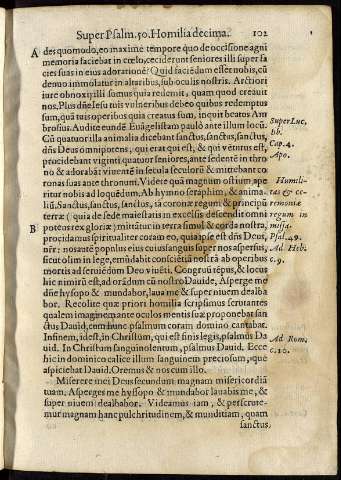 Super Psalm. 50. Homilia decima. 102
A des quomodo, eo maxime tempore quo de occisione agni
memoria faciebat in cœlo, ceciderunt seniores illi super fa
cies suas in eius adorationẽ? Quid faciẽdum esset nobis, cũ
demo immolatur in altaribus, cibus soculis nostris. Arctiori
iure obnoxij illi sumus quia redemit, quam quod creauit
nos. Plus dñe Iesu tuis vulneribus debeo quibus redemptus
sum, quã tuis operibus quia creatus sum, inquit beatus Am
brosius. Audite eundẽ Euãgelistam paulò ante illum locũ.
Cũ quatuor illa animalia dicebant sanctus, sanctus, sanctus,
dñs Deus omnipotens, qui erat qui est, & qui vẽturus est,
procidebant viginti quatuor seniores, ante sedentẽ in thro
no & adorabãt viuentẽ in secula seculorũ & mittebant co
ronas suas ante thronum. Videte quã magnum ostium ape
ritur nobis ad loquẽdum. Ab hymno seraphim, & anima
liũ, Sanctus, sanctus, sanctus, tã coronæ regum & principũ
terræ (quia de sede maiestatis in excelsis descendit omni
B potens rex gloriæ) mittãtur in terra simul & corda nostra,
procidamus spiritualiter coram eo, quia ipse est dñs Deus,
nr̃: nos autẽ populus eius cui usanguis super nos aspersus,
sicut olim in lege, emũdabit consciẽtiã nostrã ab operibus
mortis ad seruiẽdum Deo viuẽti. Congruũ tẽpus, & locus
hic nimirũ est, ad orãdum cũ nostro Dauide, Asperge me
dñe hysopo & mundabor, laua me & super niuem dealba
bor. Recolite quæ priori homilia scripsimus scrutantes
qualem imaginem ante oculos mentis suæ proponebat san
ctus Dauid, cum hunc psalmum coram domino cantabat.
Infinem, id est, in Christum, qui est finis legis, psalmus Da
uid. In Christum sanguinolentum, psalmus Dauid. Ecce
hic in dominico calice illum sanguinem preciosum, que
aspiciebat Dauid. Oremus & nos cum illo.
Miserere mei Deus secundum magnam misericordiã
tuam. Asperges me hyssopo & mundabor lauabis me, &
super niuem dealbabor. Videamus iam, & perscrute-
mur magnam hanc pulchritudinem, & munditiam, quam
sanctus
Super Luc,
bb.
Cap. 4.
Apo.
Humili-
tas & ce-
remoniæ
regum in
missa.
Psal. 49.
Ad Hebr
c. 9.
Ad Rom.
c. 10.